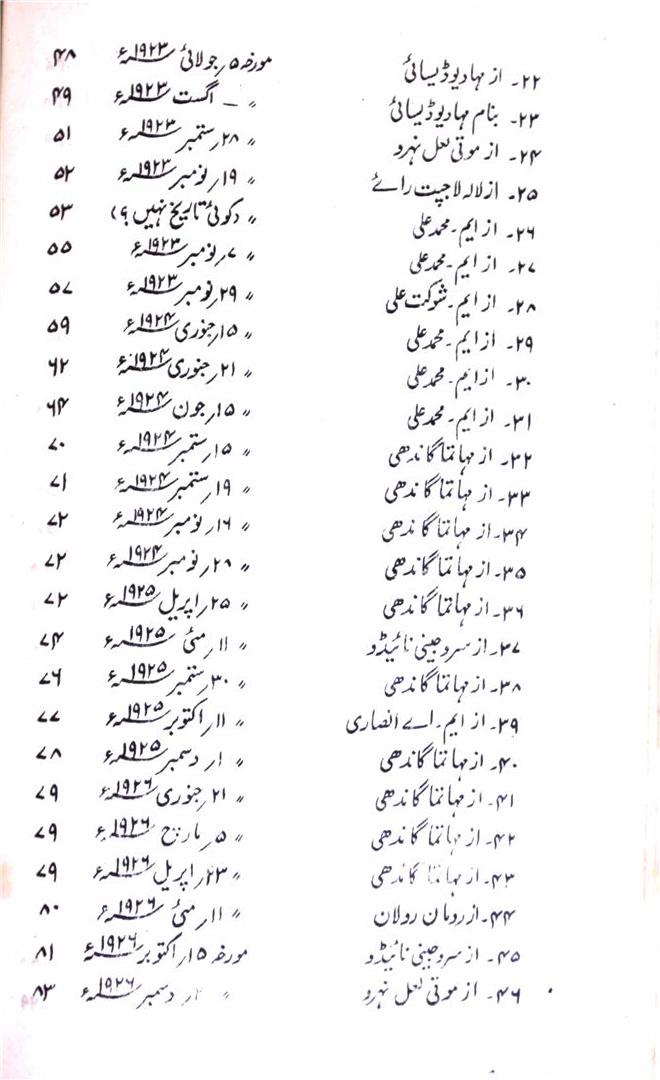 ۲۲۔ از مہادیو ڈیسائی مورخہ ۵؍جولائی ۱۹۲۳ء ۴۸
۲۳۔ بنام مہادیو ڈیسائی 〃 ـ اگست ۱۹۲۳ء ۴۹
۲۴۔ از موتی لعل نہرو 〃 ۲۸؍ستمبر ۱۹۲۳ء ۵۱
۲۵۔ از لالہ لاجپت رائے 〃 ۱۹؍نومبر ۱۹۲۳ء ۵۲
۲۶۔ از ایم۔ محمد علی 〃 (کوئی تاریخ نہیں ؟) ۵۳
۲۷۔ از ایم۔ محمد علی 〃 ۷؍نومبر ۱۹۲۳ء ۵۵
۲۸۔ از ایم۔ شوکت علی 〃 ۲۹؍نومبر ۱۹۲۳ء ۵۷
۲۹۔ از ایم۔ محمد علی 〃 ۱۵؍جنوری ۱۹۲۴ء ۵۹
۳۰۔ از ایم۔ محمد علی 〃 ۲۱؍جنوری ۱۹۲۴ء ۶۲
۳۱۔ از ایم۔ محمد علی 〃 ۱۵؍جون ۱۹۲۴ء ۶۴
۳۲۔ از مہاتما گاندھی 〃 ۱۵؍ستمبر ۱۹۲۴ء ۷۰
۳۳۔ از مہاتما گاندھی 〃 ۱۹؍ستمبر ۱۹۲۴ء ۷۱
۳۴۔ از مہاتما گاندھی 〃 ۱۶؍نومبر ۱۹۲۴ء ۷۲
۳۵۔ از مہاتما گاندھی 〃 ۲۸؍نومبر ۱۹۲۴ء ۷۲
۳۶۔ از مہاتما گاندھی 〃 ۲۵؍اپریل ۱۹۲۵ء ۷۲
۳۷۔ از سروجینی نائیڈو 〃 ۱۱؍مئی ۱۹۲۵ء ۷۴
۳۸۔ از مہاتما گاندھی 〃 ۳۰؍ستمبر ۱۹۲۵ء ۷۶
۳۹۔ از ایم۔ اے انصاری 〃 ۱۱؍اکتوبر ۱۹۲۵ء ۷۷
۴۰۔ از مہاتما گاندھی 〃 ۱؍دسمبر ۱۹۲۵ء ۷۸
۴۱۔ از مہاتما گاندھی 〃 ۲۱؍جنوری ۱۹۲۶ء ۷۹
۴۲۔ از مہاتما گاندھی 〃 ۵؍مارچ ۱۹۲۶ء ۷۹
۴۳۔ از مہاتما گاندھی 〃 ۲۳؍اپریل ۱۹۲۶ء ۷۹
۴۴۔ از رومان رولان 〃 ۱۱؍مئی ۱۹۲۶ء ۸۰
۴۵۔ از سروجینی نائیڈو مورخہ ۱۵؍اکتوبر ۱۹۲۶ء ۸۱
۴۶۔ از موتی لعل نہرو 〃 دسمبر ۱۹۲۶ء ۸۳